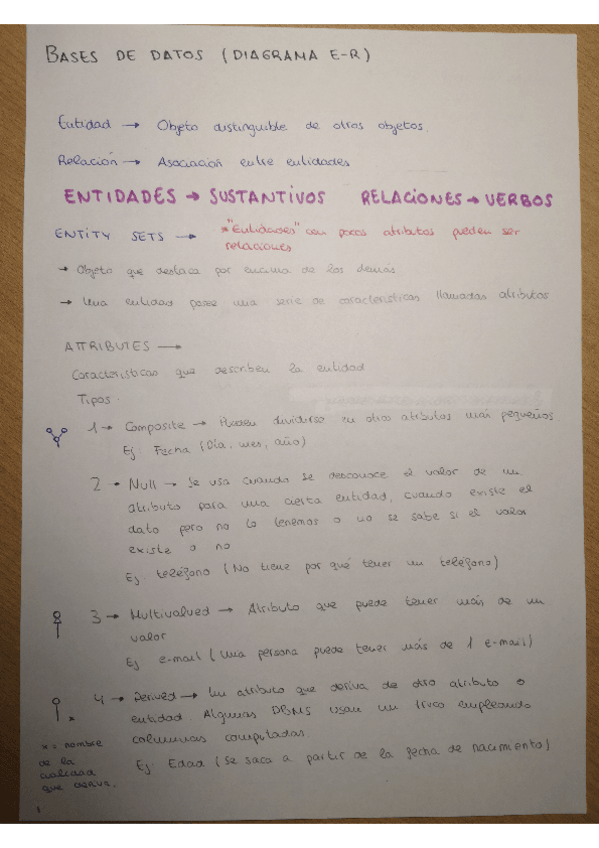 BASES DE DATOS (DIAGRAMA E-R)
Entidad → Objeto distinguible de otros objetos.
Relación → Asociación entre entidades
ENTIDADES → SUSTANTIVOS RELACIONES → VERBOS
ENTITY SETS → * "Entidades" con pocos atributos pueden ser
relaciones
→ Objeto que destaca por encima de los demás
→ Una entidad posee una serie de características llamadas atributos
ATTRIBUTES →
Características que describen la entidad
Tipos.
1 → Composite → Pueden dividirse en otros atributos más pequeños
Ej: Fecha (Día, mes, año)
2 → Null → Se usa cuando se desconoce el valor de un
atributo para una cierta entidad, cuando existe el
dato pero no lo tenemos o no se sabe si el valor
existe o no
Ej teléfono (No tiene por qué tener un teléfono)
3 → Multivalued → Atributo que puede tener más de un
valor
Ej e-mail (Una persona puede tener más de 1 e-mail)
4 → Derived → Un atributo que deriva de otro atributo o
entidad. Algunas DBMS usan un truco empleando
columnas computadas.
Ej: Edad (Se saca a partir de la fecha de nacimiento)
*
* = nombre
de la
que
1